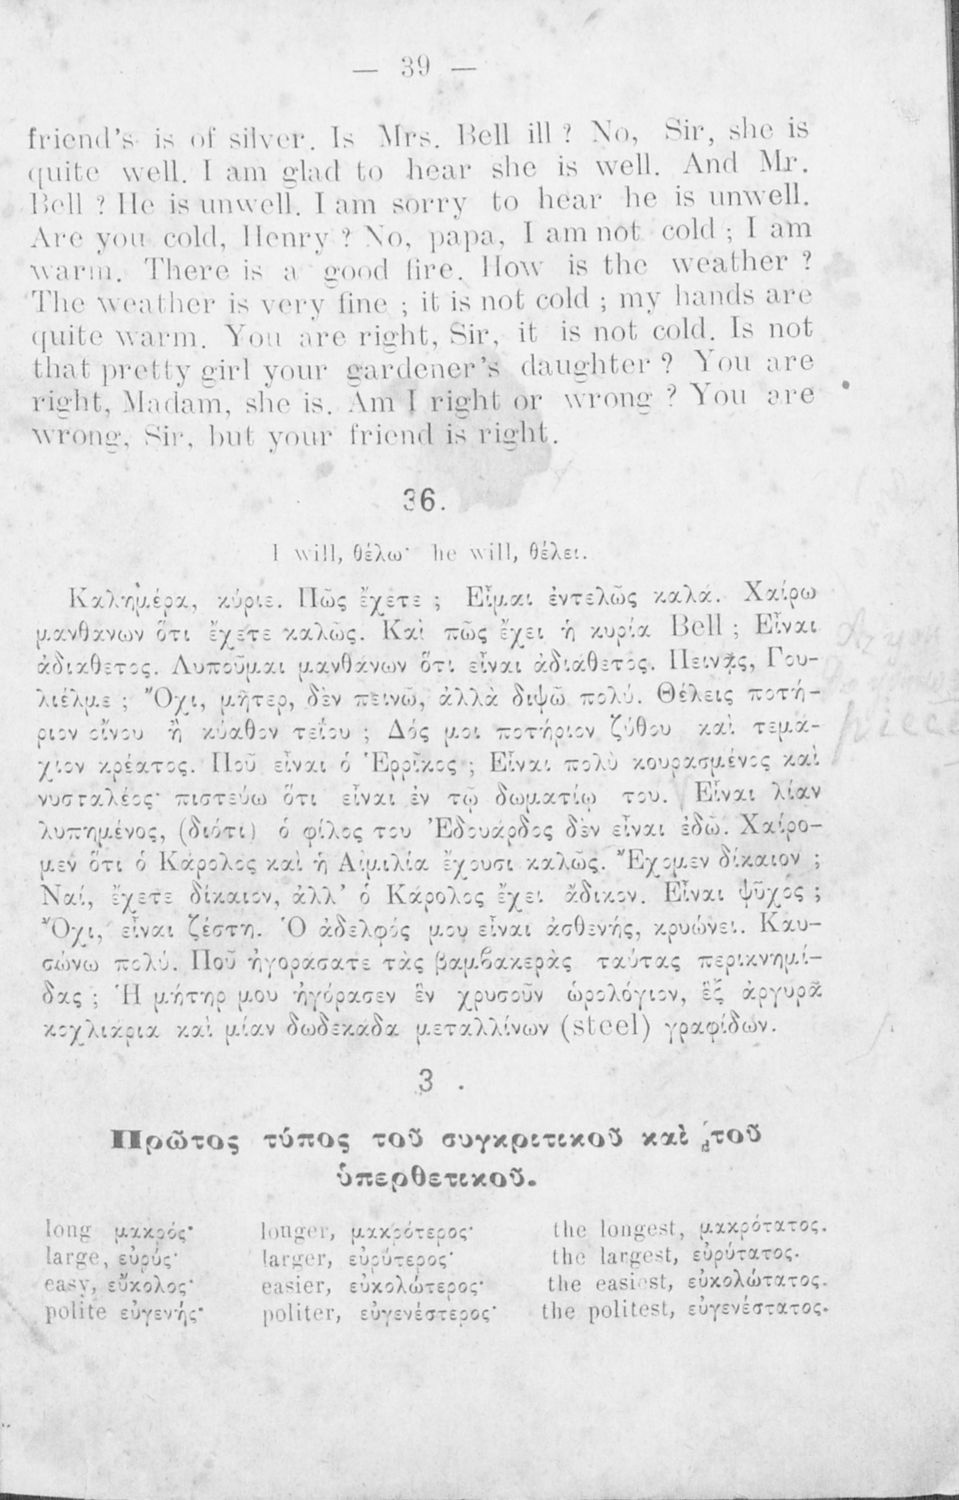 — 39 —
friend's is of silver. Is Mrs. Bell ill ? No, Sir, she is
quite well. I am glad to hear she is well. And Mr.
Bell ? He is unwell. I am sorry to hear he is unwell.
Are you cold, Henry ? No, papa, I am not cold ; I am
warm. There is a good fire. How is the weather ?
The weather is very fine ; it is not cold ; my hands are
quite warm. You are right, Sir, it is not cold. Is not
that pretty girl your gardener's daughter ? You are
right, Madam, she is. Am I right or wrong ? You are
wrong, Sir, but your friend is right.
36.
I will, θέλω· he will, θέλει.
Καλημέρα, κύριε. Πῶς ἔχετε ; Εἶμαι ἐντελῶς καλά. Χαίρω
μανθάνων ὅτι ἔχετε καλῶς. Καὶ πῶς ἔχει ἡ κυρία Bell ; Εἶναι
ἀδιάθετος. Λυποῦμαι μανθάνων ὅτι εἶναι ἀδιάθετος. Πεινᾷς, Γου-
λιέλμε ; Ὄχι, μῆτερ, δὲν πεινῶ, ἀλλὰ διψῶ πολύ. Θέλεις ποτή-
ριον οἴνου ἢ κύαθον τεΐου ; Δός μοι ποτήριον ζύθου καὶ τεμά-
χιον κρέατος. Ποῦ εἶναι ὁ Ἑρρῖκος ; Εἶναι πολὺ κουρασμένος καὶ
νυσταλέος· πιστεύω ὅτι εἶναι ἐν τῷ δωματίῳ του. Εἶναι λίαν
λυπημένος, (διότι) ὁ φίλος του Ἐδουάρδος δὲν εἶναι ἐδῶ. Χαίρο-
μεν ὅτι ὁ Κάρολος καὶ ἡ Αἰμιλία ἔχουσι καλῶς. Ἔχομεν δίκαιον ;
Ναί, ἔχετε δίκαιον, ἀλλ' ὁ Κάρολος ἔχει ἄδικον. Εἶναι ψῦχος ;
Ὄχι, εἶναι ζέστη. Ὁ ἀδελφός μου εἶναι ἀσθενής, κρυώνει. Καυ-
σώνω πολύ. Ποῦ ἠγοράσατε τὰς βαμβακερὰς ταύτας περικνημί-
δας ; Ἡ μήτηρ μου ἠγόρασεν ἓν χρυσοῦν ὡρολόγιον, ἓξ ἀργυρᾶ
κοχλιάρια καὶ μίαν δωδεκάδα μεταλλίνων (steel) γραφίδων.
3 .
Πρῶτος τύπος τοῦ συγκριτικοῦ καὶ τοῦ
ὑπερθετικοῦ.
long μακρός· longer, μακρότερος· the longest, μακρότατος.
large, εὐρύς· larger, εὐρύτερος· the largest, εὐρύτατος.
easy, εὔκολος· easier, εὐκολώτερος· the easiest, εὐκολώτατος.
polite εὐγενής· politer, εὐγενέστερος· the politest, εὐγενέστατος.
piece